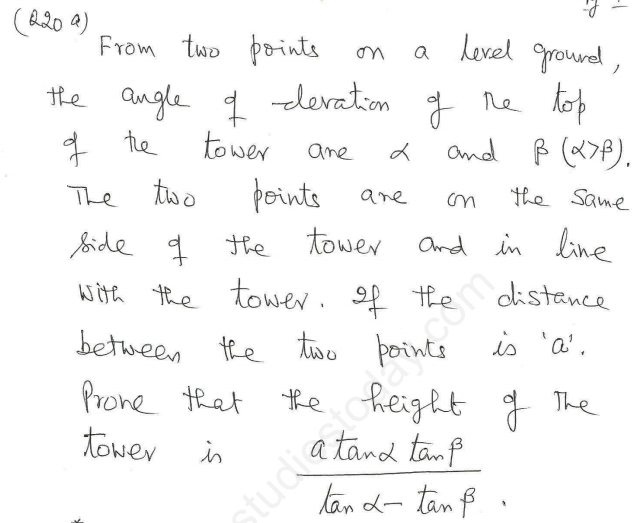 (Q20 a)
From two points on a level ground,
the angle of elevation of the top
of the tower are α and β (α>β).
The two points are on the same
side of the tower and in line
with the tower. If the distance
between the two points is 'a'.
Prove that the height of the
tower is a tanα tanβ / tan α - tan β .
studiestoday.com